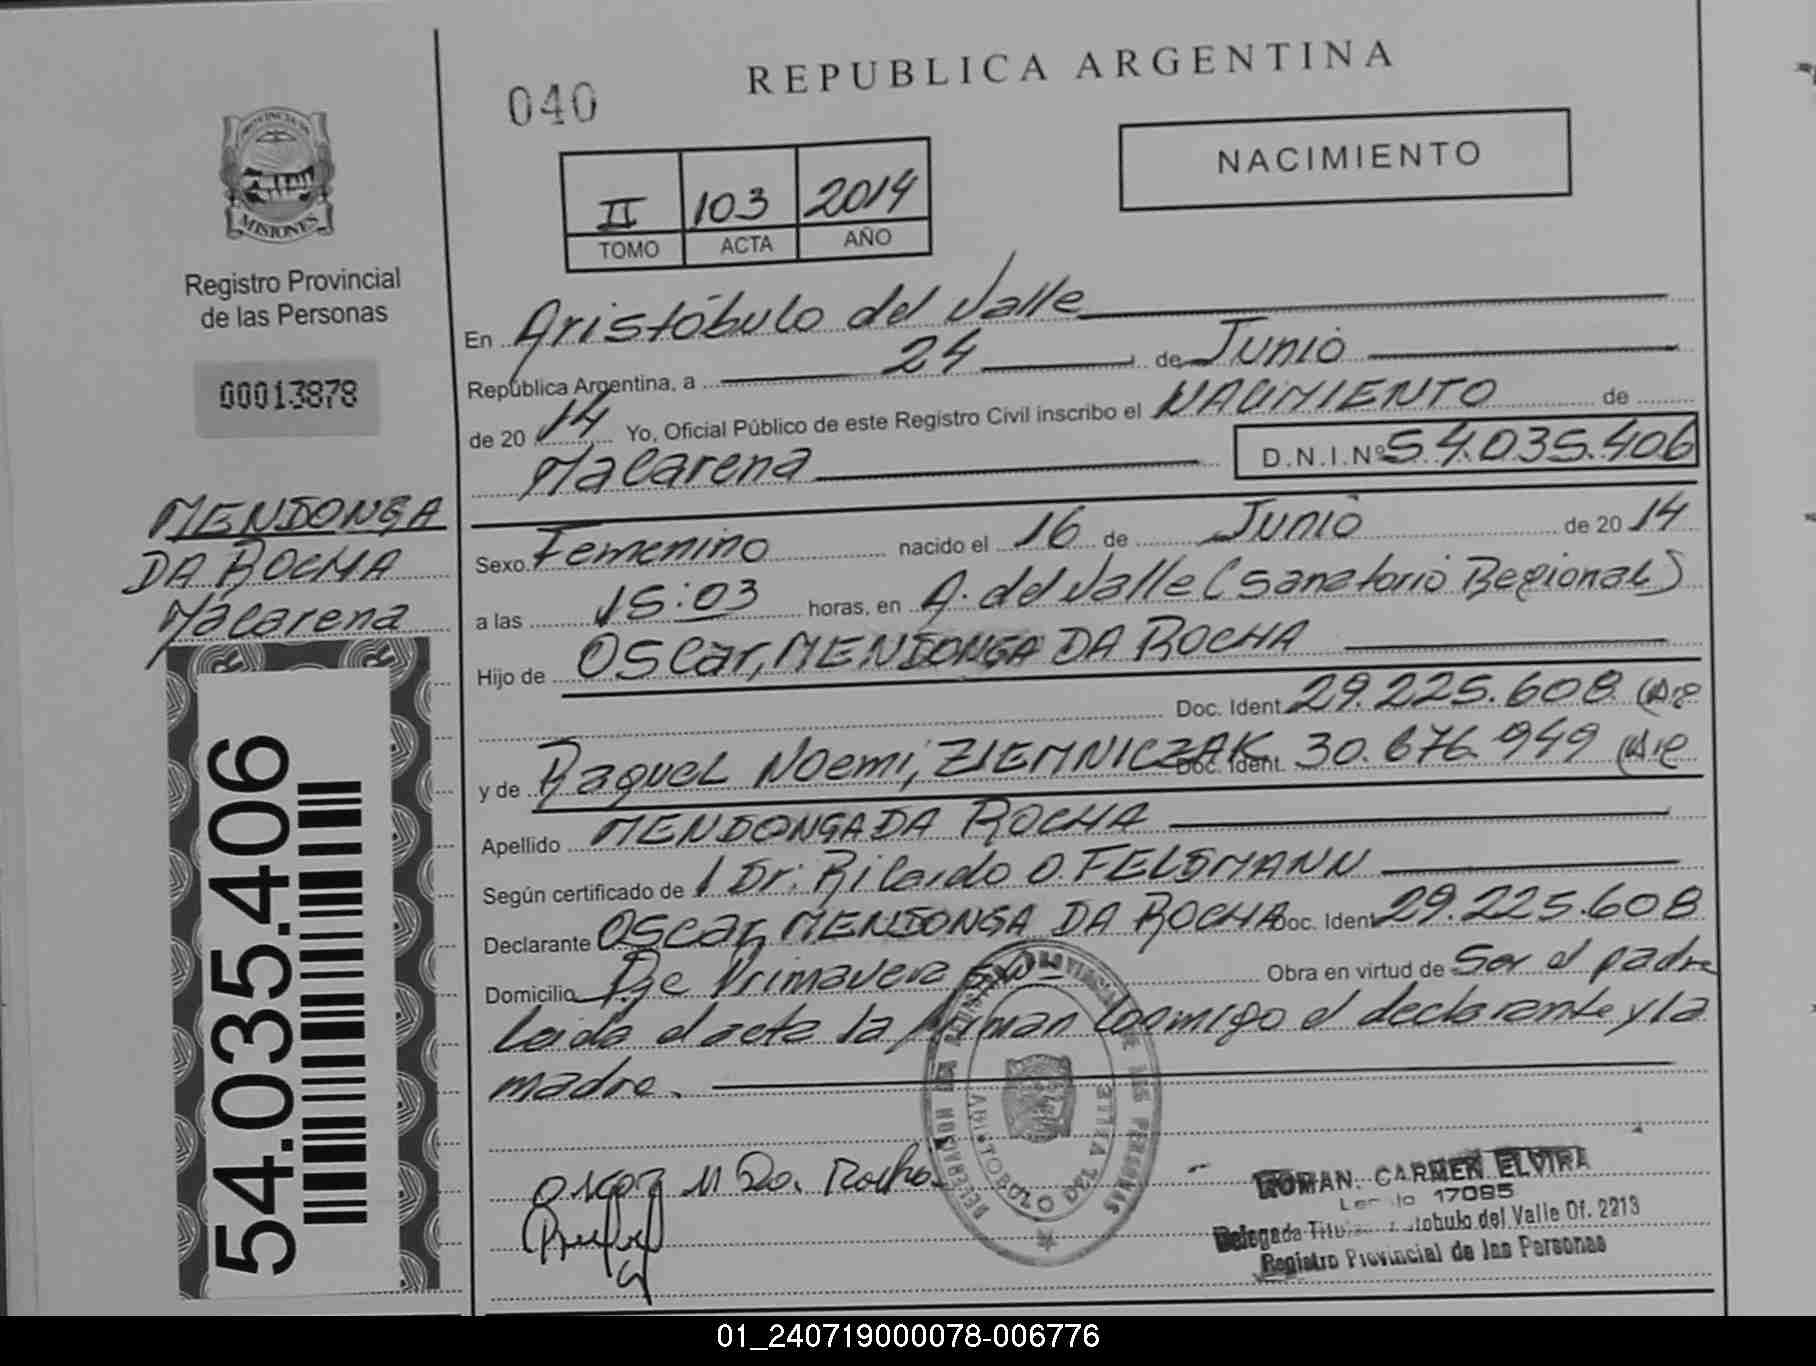 REPUBLICA ARGENTINA
040
NACIMIENTO
II 103 2014
TOMO ACTA AÑO
MISIONES
Registro Provincial
de las Personas
00013878
MENDONGA
DA ROCHA
Macarena
54.035.406
En Aristóbulo del Valle
República Argentina, a 24 de Junio
de 20 14 Yo, Oficial Público de este Registro Civil inscribo el NACIMIENTO de
Macarena D.N.I.Nº 54.035.406
Sexo Femenino nacido el 16 de Junio de 20 14
a las 15:03 horas, en A. del Valle (Sanatorio Regional)
Hijo de Oscar, MENDONGA DA ROCHA
Doc. Ident 29.225.608 (Arg
y de Raquel Noemi, ZIEMNICZAK Doc. Ident. 30.676.949 (Arg
Apellido MENDONGA DA ROCHA
Según certificado de Dr. Ricardo O. FELDMANN
Declarante Oscar, MENDONGA DA ROCHA Doc. Ident 29.225.608
Domicilio Pje Primavera Obra en virtud de Ser el padre
Leída el acta la firman conmigo el declarante y la
madre.
Oscar M Da. Rocha
ROMAN. CARMEN ELVIRA
17095
Delegada Titular Aristobulo del Valle Of. 2213
Registro Provincial de las Personas
01_240719000078-006776